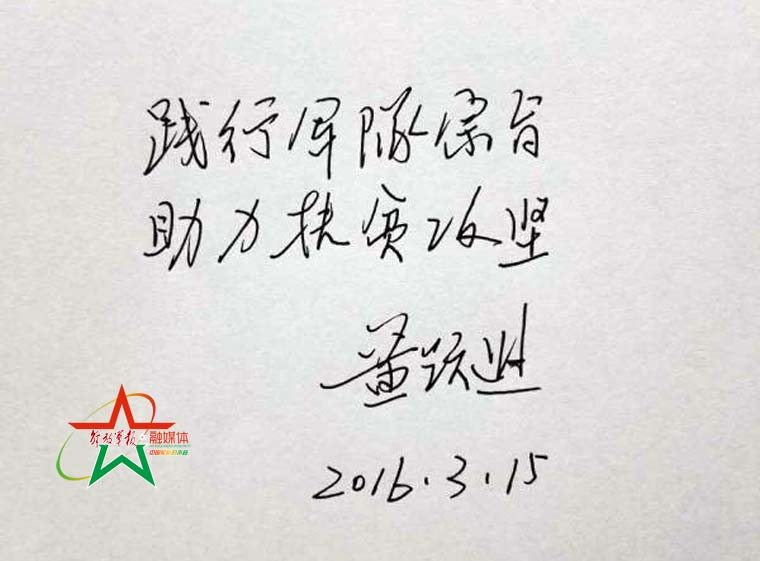 践行军队宗旨
助力扶贫攻坚
董跃进
2016.3.15
解放军报·融媒体